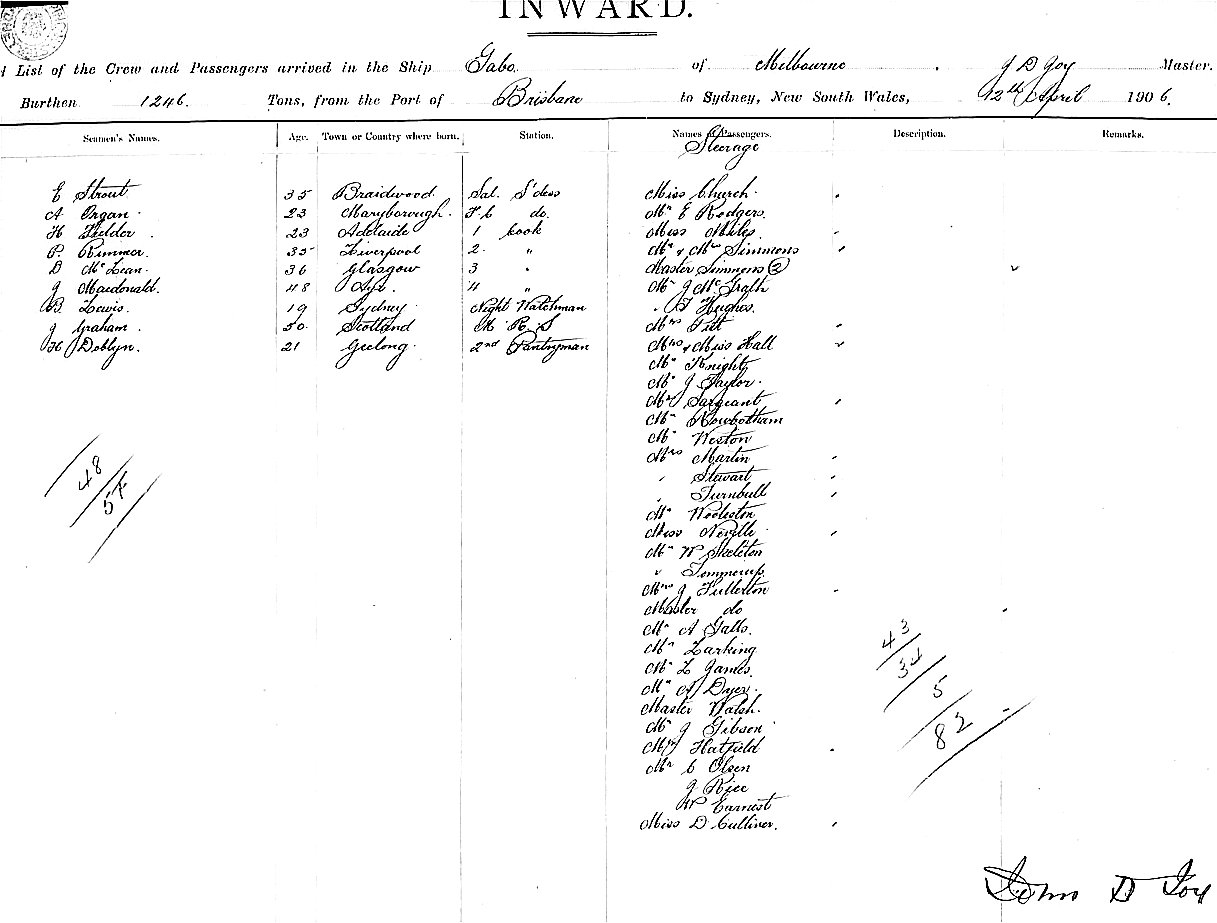 INWARD.
List of the Crew and Passengers arrived in the Ship Gabo of Melbourne, J D Joy Master.
Burthen 1246. Tons, from the Port of Brisbane to Sydney, New South Wales, 12th April 1906.
Seamen's Names. Age. Town or Country where born. Station. Names of Passengers. Description. Remarks.
Steerage
E Strout 35 Braidwood Sal. S'dess Miss Church
A Organ 23 Maryborough. F C do. Mr E Rodgers
H Fielder 23 Adelaide 1 Cook Miss Miles
P. Rimmer. 35 Liverpool 2 " Mr & Mrs Simmons
D McLean 36 Glasgow 3 " Master Simmons (2)
J Macdonald. 48 Ayr. 4 " Mr J McGrath
B Lewis. 19 Sydney Night Watchman " T Hughes.
J Graham. 50 Scotland M. R. S Mrs Pitt
W Doblyn. 21 Geelong. 2nd Pantryman Mrs & Miss Hall
Mr Knight
Mr J Taylor.
Mrs Sargeant
Mr Rowbotham
Mr Weston
Mrs Martin
" Stewart
" Turnbull
Mr Wooleston
Miss Neville
Mr W Skeleton
" Tommerup
Mrs J Fullerton
Master do
Mr A Galls.
Mr Larking
Mr L James.
Mr A Dyer.
Master Walsh.
Mr J Gibson
Mrs Hatfield
Mr C Olsen
J Rice
W Earnest
Miss D Culliner.
48
54
43
34
5
82
John D Joy